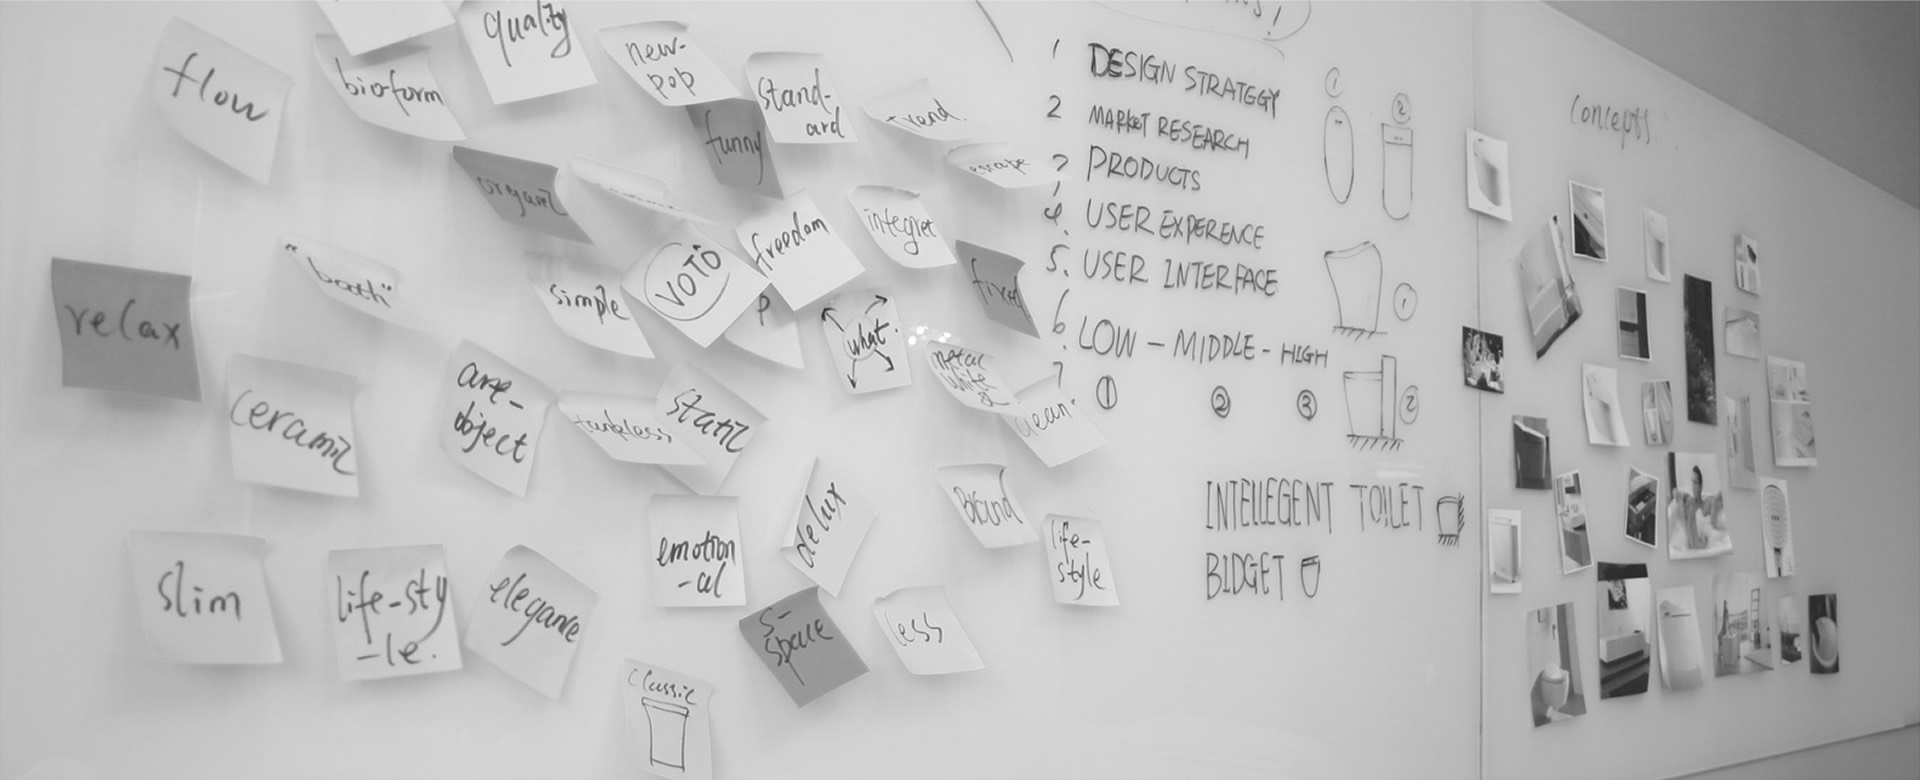 quality
flow
bioform
new-
pop
stand-
ard
trend.
funny
escape
organic
freedom
integret
VOTO
"bath"
simple
P
what.
fixed
relax
metal
white
&
clean.
ceramic
are-
object
tankless
static
emotion
-al
delux
Brand
life-
style
slim
life-sty
-le.
elegance
S-
space
less
classic
1 DESIGN STRATEGY
2 MARKET RESEARCH
3 PRODUCTS
4. USER EXPERENCE
5. USER INTERFACE
6. LOW - MIDDLE - HIGH
7
① ② ③
① ②
①
②
INTELLEGENT TOILET
BIDGET
concepts